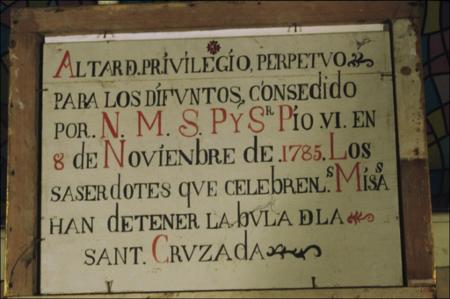 ALTAR Đ. PRIVILEGIO, PERPETVO
PARA LOS DIFVNTOS, CONSEDIDO
POR. N. M. S. P Y Sʳ PIO .VI. EN
8 de NOVIENBRE de .1785. LOS
SASERDOTES QVE CELEBREN Lˢ MISˢ
HAN DETENER LA BVLA DLA
SANT. CRVZADA